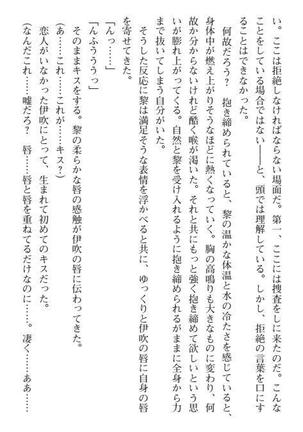 い。ここは拒絶しなければならない場面だ。第一、ここには捜査をしに来たのだ。こんな
ことをしている場合ではない――と、頭では理解している。しかし、拒絶の言葉を口にす
ることはできなかった。
何故だろう？　抱き締められていると、黎の温かな体温と水の冷たさを感じていると、
身体中が燃え上がりそうなほどに熱くなっていく。胸の高鳴りも大きなものに変わり、何
故か分からないけれど酷く喉が渇いた。それと共にもっと強く抱き締めて欲しいという思
いが膨れ上がってくる。自然と黎を受け入れるように抱き締められるがままに全身から力
まで抜いてしまう自分がいた。
そうした反応に黎は満足そうな表情を浮かべると共に、ゆっくりと伊吹の唇に自身の唇
を寄せてきた。
「んっ……」
「んふううっ」
そのままキスをする。黎の柔らかな唇の感触が伊吹の唇に伝わってきた。
（あ……これ……これが……キス？）
恋人がいなかった伊吹にとって、生まれて初めてのキスだった。
（なんだこれ……嘘だろ？　唇……唇と唇を重ねてるだけなのに……。凄く……ああ……